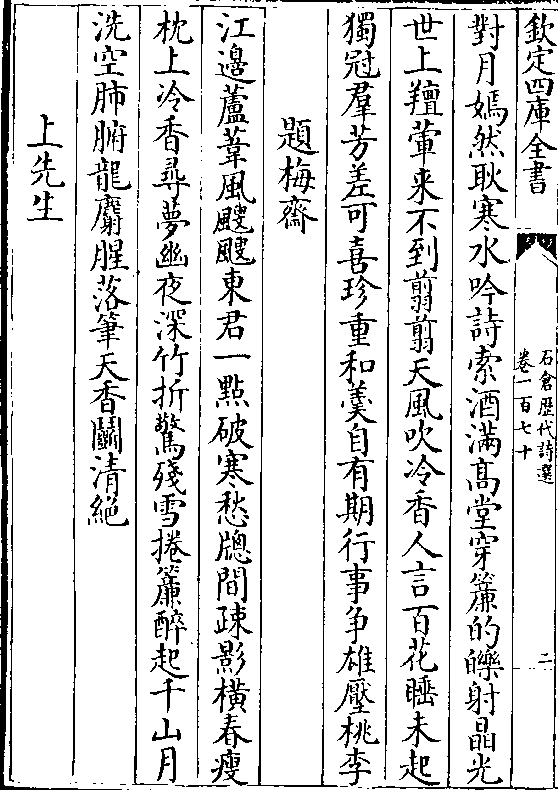 欽定四庫全書
石倉歴代詩選
卷一百七十
二
對月嫣然耿寒水吟詩索酒滿髙堂穿簾的皪射晶光
世上羶葷来不到翦翦天風吹冷香人言百花睡未起
獨冠羣芳差可喜珍重和羮自有期行事争雄壓桃李
題梅齋
江邊蘆葦風颼颼東君一點破寒愁牕間疎影横春瘦
枕上冷香尋夢幽夜深竹折驚殘雪捲簾醉起千山月
洗空肺腑龍麝腥落筆天香鬭清絶
上先生